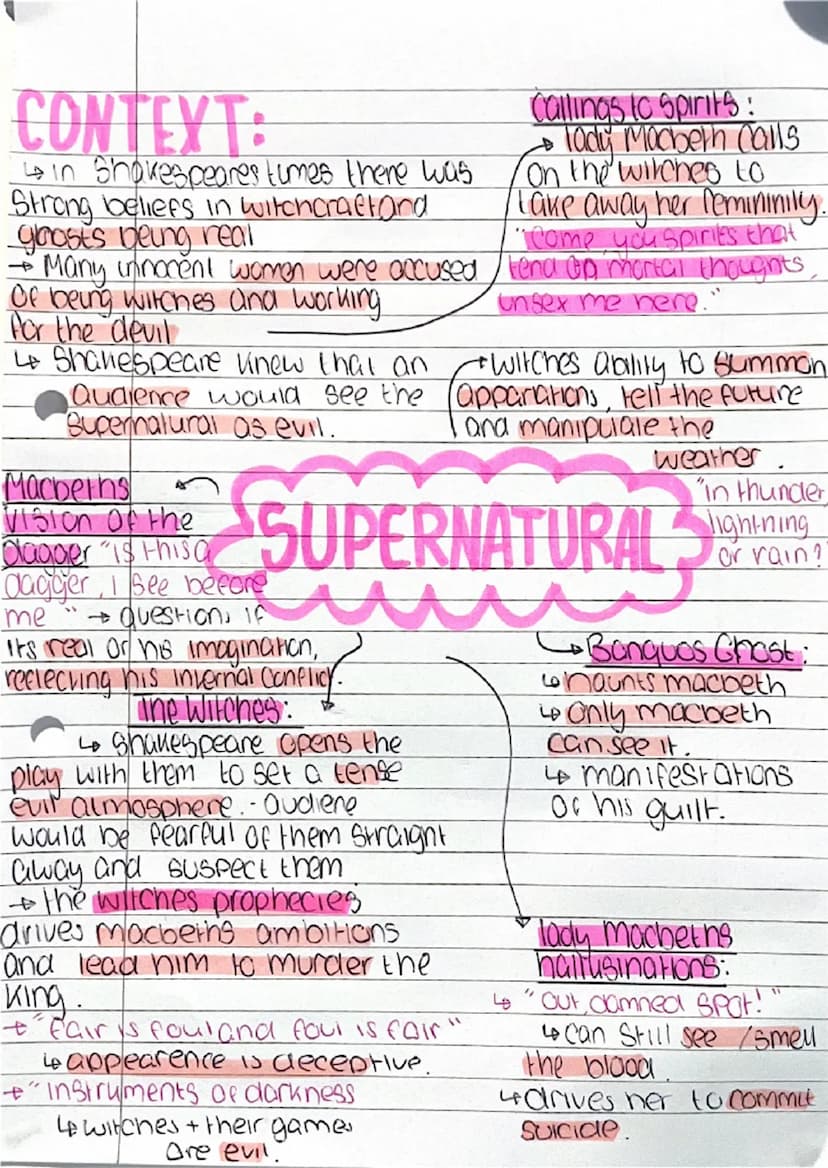 CONTEXT:
↳ in Shakespeares times there was
Strong beliefs in witchcraft and
ghosts being real
→ Many innocent women were accused
of being witches and working
for the devil
↳ Shakespeare knew that an
audience would see the
supernatural as evil.
Callings to Spirits:
lady Macbeth calls
on the witches to
take away her femininily.
"come, you spirits that
tend on mortal thoughts,
unsex me here."
witches ability to summon
apparations, tell the future
and manipulate the
weather.
"in thunder,
lightning
or rain?
SUPERNATURAL
Macbeths
vision of the
dagger "is this a
dagger, I see before
me" → questions if
its real or his imagination,
reflecting his internal conflict.
The Witches:
↳ Shakespeare opens the
play with them to set a tense
evil atmosphere. - audiene
would be fearful of them straight
away and suspect them
→ the witches prophecies
drives macbeths ambitions
and lead him to murder the
king.
→ "fair is foul and foul is fair"
↳ appearence is deceptive.
→ "instruments of darkness
↳ witches + their games
are evil.
Banquos Ghost:
↳ haunts macbeth
↳ only macbeth
can see it.
↳ manifestations
of his guilt.
lady Macbeths
hallusinations:
↳ "out, damned spot!"
↳ can still see /smell
the blood.
↳ drives her to commit
suicide.